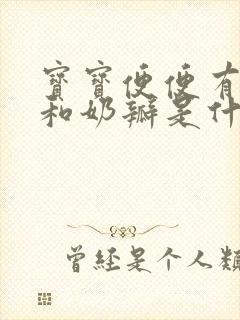 寶寶便便有
和奶瓣是什
曾經是个人類